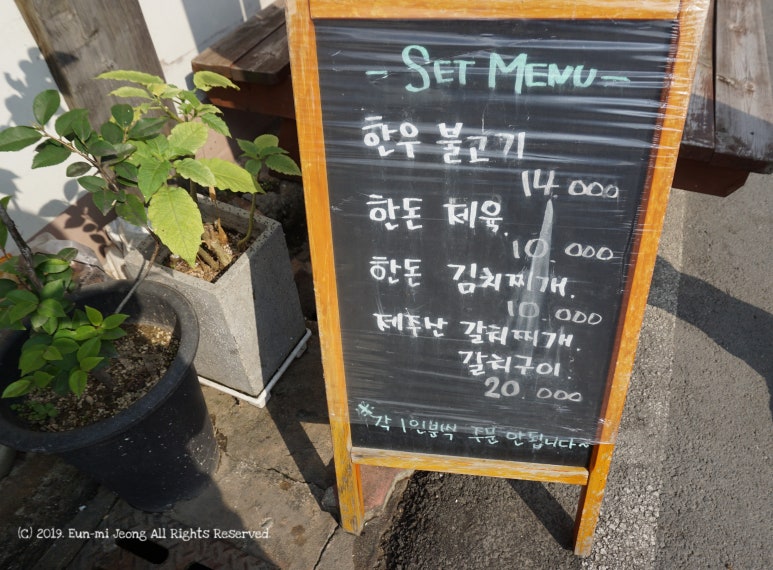 - SET MENU -
한우 불고기
14.000
한돈 제육.
10.000
한돈 김치찌개.
10.000
제주산 갈치찌개.
갈치구이.
20.000
※각 1인분씩 주문 안됩니다~
(C) 2019. Eun-mi Jeong All Rights Reserved.